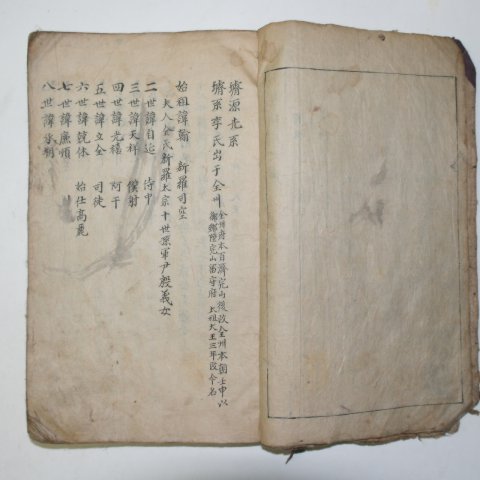 璿源先系
璿系李氏出于全州全州府本百濟完山後改全州本國壬申以
御鄕陞完山留守府 太祖大王三年改今名
始祖諱翰 新羅司空
夫人金氏新羅太宗十世孫軍尹殷義女
二世諱自延 侍中
三世諱天祥 僕射
四世諱光禧 阿干
五世諱立全 司徒
六世諱兢休 始仕高麗
七世諱廉順
八世諱承朔